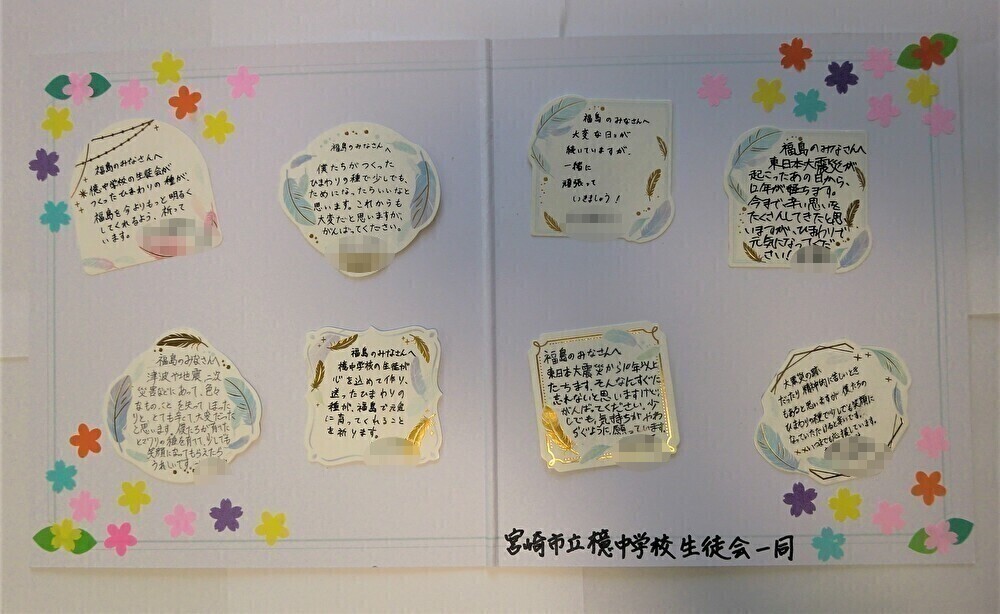 福島のみなさんへ
檍中学校の生徒会が
つくったひまわりの種が、
福島を今よりもっと明るく
してくれるよう、祈って
います。
福島のみなさんへ
僕たちがつくった
ひまわりの種で少しでも、
ためになったらいいなと
思います。これからも
大変だと思いますが、
がんばってください。
福島のみなさんへ
大変な日々が
続いていますが、
一緒に
頑張って
いきましょう!
福島のみなさんへ
東日本大震災が
起こったあの日から、
12年が経ちます。
今まで辛い思いを
たくさんしてきたと思
いますが、ひまわりで
元気になってくだ
さい!
福島のみなさんへ
津波や地震、二次
災害などにあって、色々
なもの、ことを失ってしまった
りと、とても辛くて大変だった
と思います。僕たちが育てた
ヒマワリの種を育て、少しでも
笑顔になってもらえたら
うれしいです。
福島のみなさんへ
檍中学校の生徒が
心を込めて作り、
送ったひまわりの
種が、福島で元気
に育ってくれること
を祈ります。
福島のみなさんへ
東日本大震災から10年以上
たちます。そんなにすぐに
忘れないと思いますけど、
がんばってください。少
しでも、気持ちがやわ
らぐように、願っています。
大震災の影
だったり、精神的に苦しいとき
もあると思いますが、僕たちの
ひまわりの種で少しでも笑顔に
なっていただけると幸いです。
いつまでも応援しています。
宮崎市立檍中学校生徒会一同